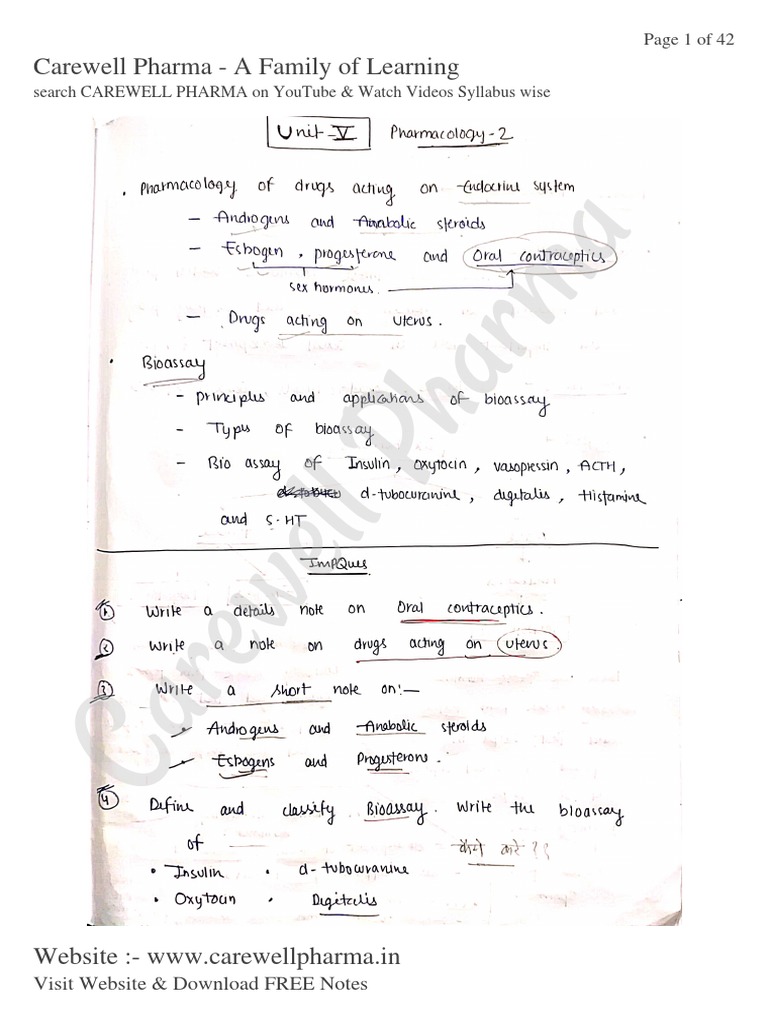 Page 1 of 42
Carewell Pharma - A Family of Learning
search CAREWELL PHARMA on YouTube & Watch Videos Syllabus wise
Unit-V Pharmacology-2
• Pharmacology of drugs acting on Endocrine system
- Androgens and Anabolic steroids
- Estrogen, progesterone and Oral contraceptics
sex hormones.
- Drugs acting on uterus.
• Bioassay
- principles and applications of bioassay
- Types of bioassay
- Bio assay of Insulin, oxytocin, vasopressin, ACTH,
d-tubocuranine, digitalis, Histamine
and 5-HT
ImpQues
1 Write a details note on Oral contraceptics.
2 Write a note on drugs acting on uterus.
3 Write a short note on:-
Androgens and Anabolic steroids
Estrogens and Progesterone.
4 Define and classify Bioassay. Write the bioassay
of कैसे करे ??
• Insulin • d-tubocuranine
• Oxytocin • Digitalis
Carewell Pharma
Website :- www.carewellpharma.in
Visit Website & Download FREE Notes